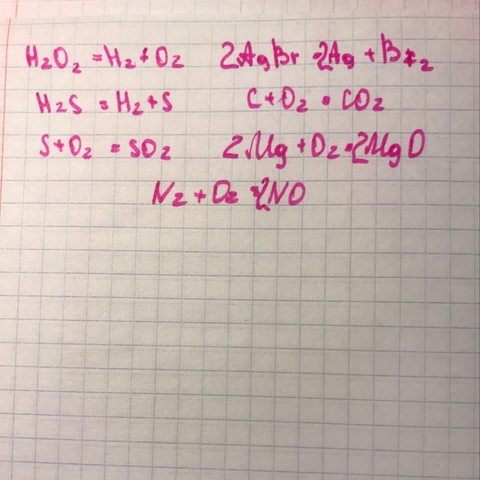 H2O2 = H2 + O2 2AgBr = 2Ag + Br2
H2S = H2 + S C + O2 = CO2
S + O2 = SO2 2Mg + O2 = 2MgO
N2 + O2 = 2NO